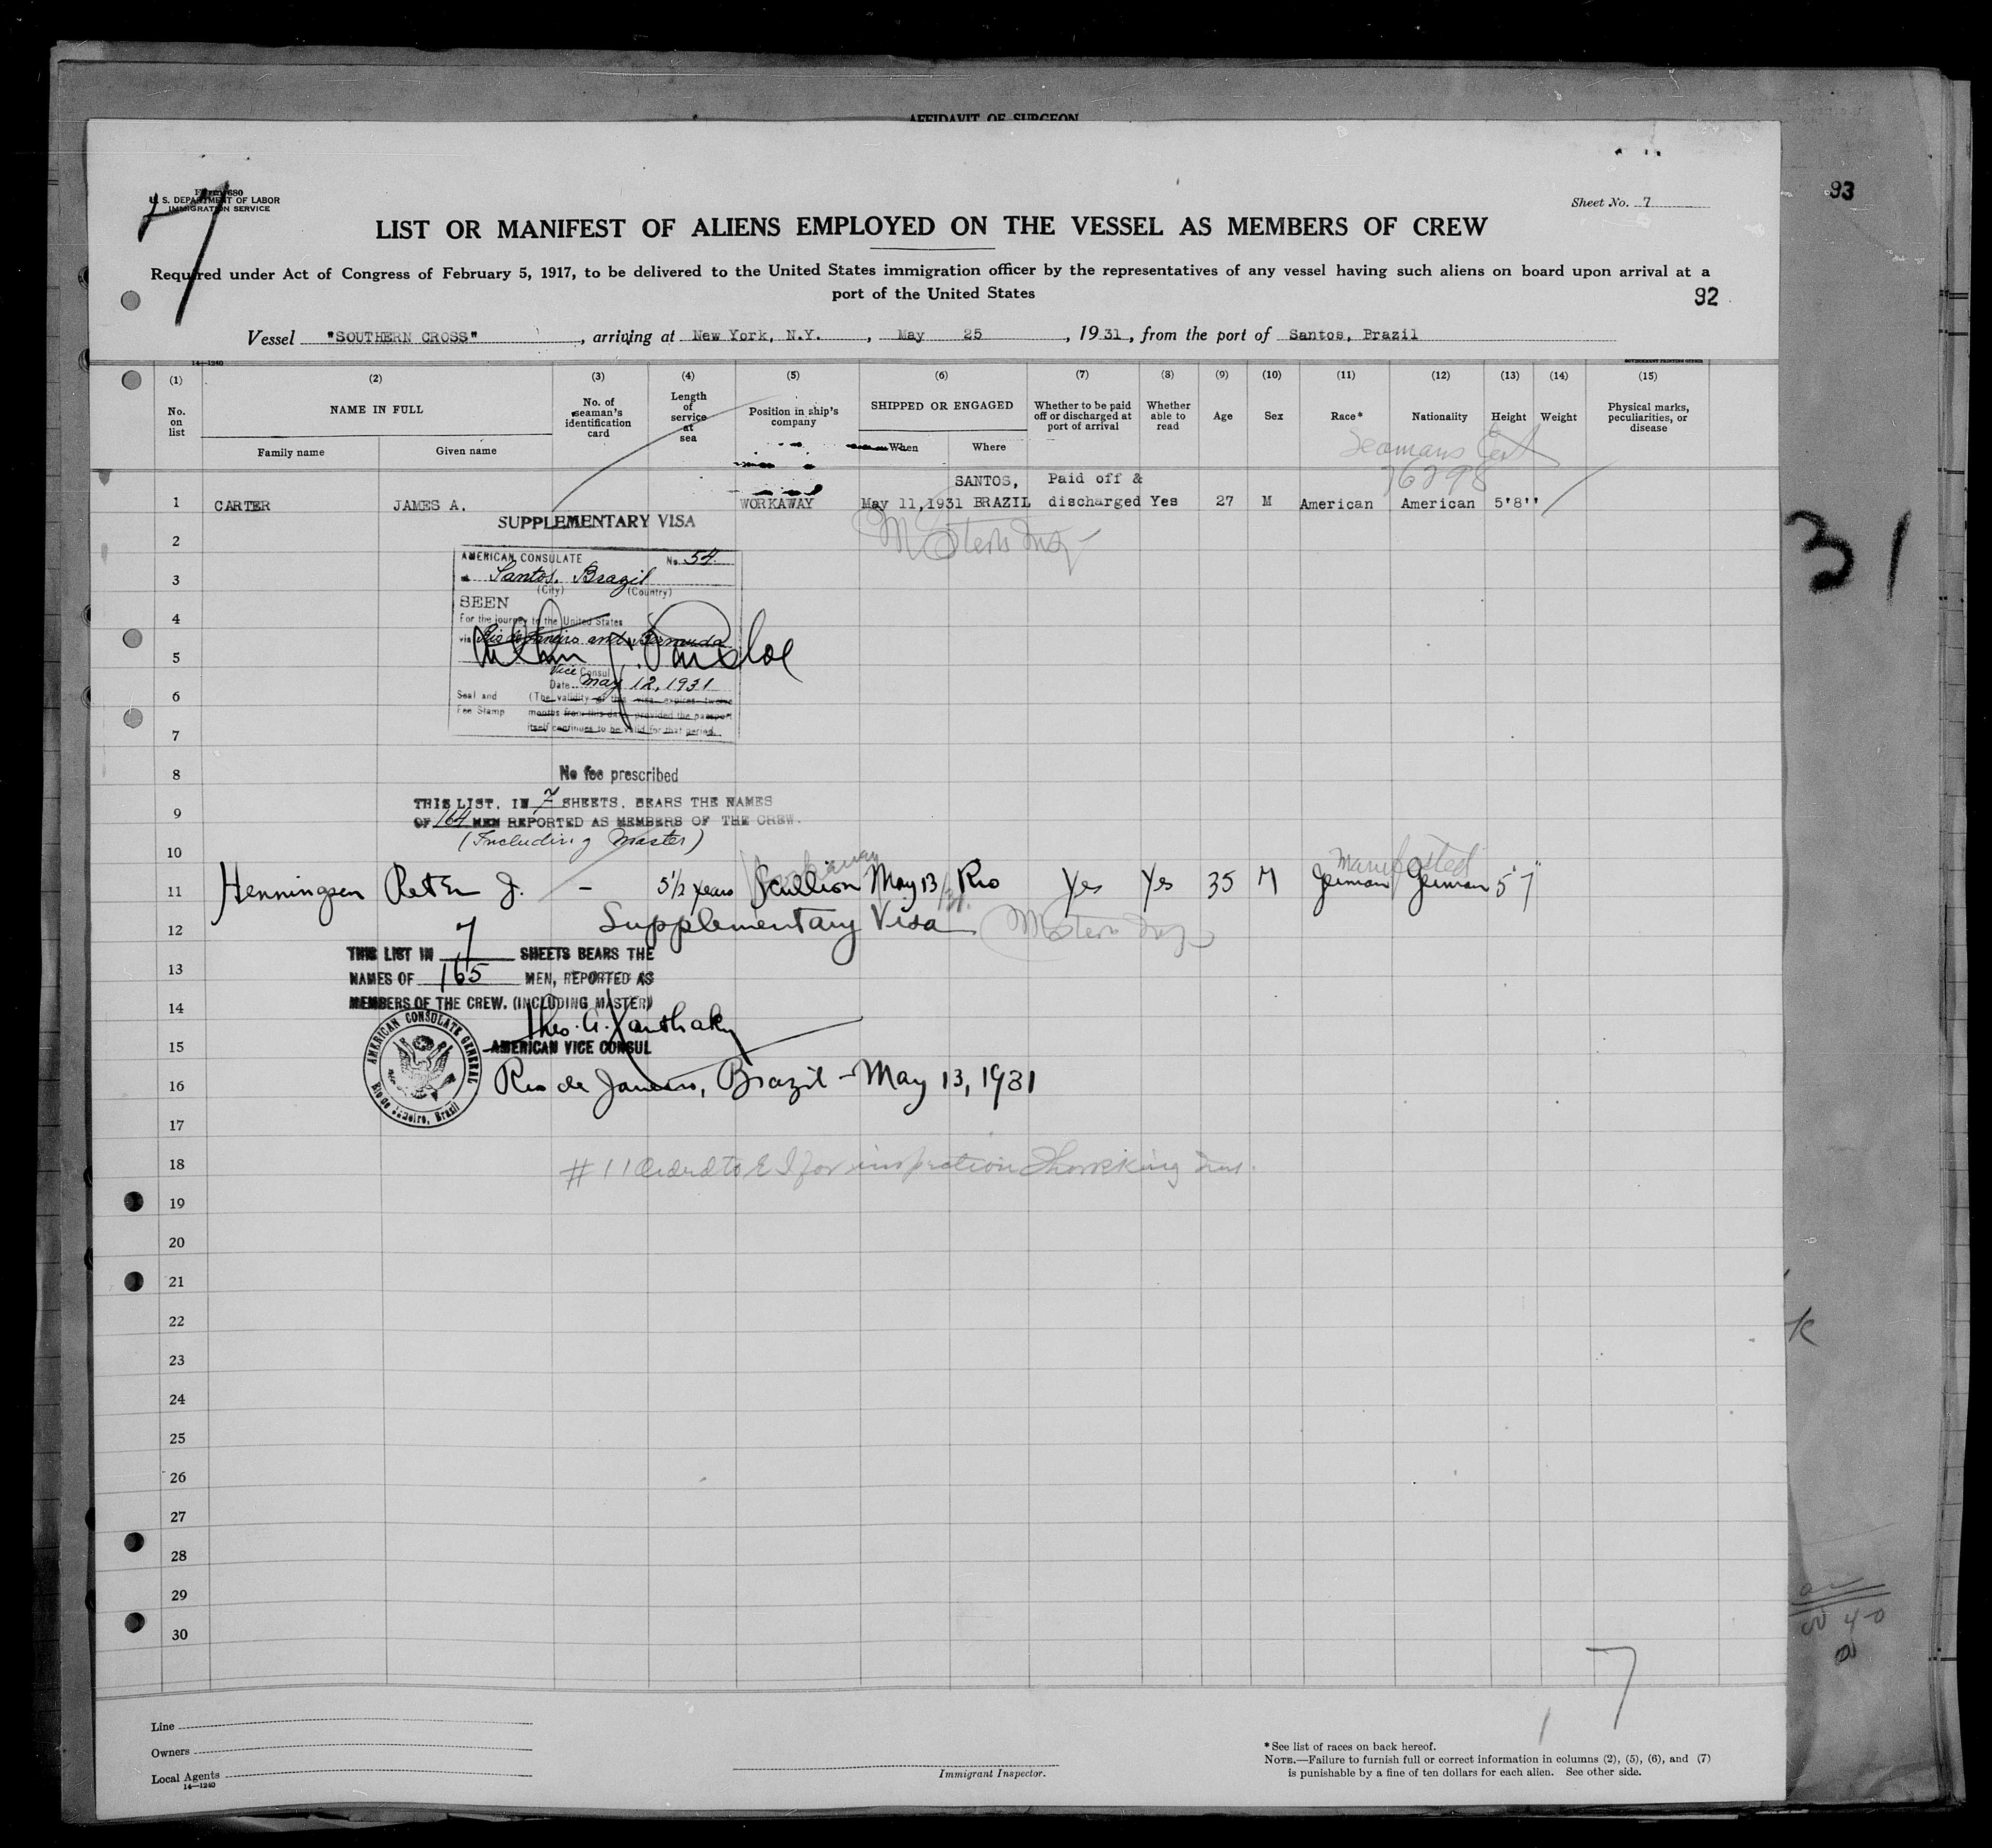 AFFIDAVIT OF SURGEON
93
Form 680
U. S. DEPARTMENT OF LABOR
IMMIGRATION SERVICE
7
Sheet No. 7
LIST OR MANIFEST OF ALIENS EMPLOYED ON THE VESSEL AS MEMBERS OF CREW
Required under Act of Congress of February 5, 1917, to be delivered to the United States immigration officer by the representatives of any vessel having such aliens on board upon arrival at a
port of the United States
92
Vessel "SOUTHERN CROSS", arriving at New York, N.Y., May 25, 1931, from the port of Santos, Brazil
14—1240
GOVERNMENT PRINTING OFFICE
(1) (2) (3) (4) (5) (6) (7) (8) (9) (10) (11) (12) (13) (14) (15)
No. on list
NAME IN FULL
Family name
Given name
No. of seaman's identification card
Length of service at sea
Position in ship's company
SHIPPED OR ENGAGED
When
Where
Whether to be paid off or discharged at port of arrival
Whether able to read
Age
Sex
Race*
Nationality
Height
Weight
Physical marks, peculiarities, or disease
Seamans Cert
76298
1 CARTER JAMES A. WORKAWAY May 11,1931 SANTOS, BRAZIL Paid off & discharged Yes 27 M American American 5'8''
31
SUPPLEMENTARY VISA
2
AMERICAN CONSULATE No. 54
3
at Santos, Brazil
(City) (Country)
SEEN
4
For the journey to the United States
via Rio de Janeiro and Bermuda
5
Vice Consul
Date May 12, 1931
6
Seal and Fee Stamp
(The validity of this visa expires twelve
months from this date provided the passport
itself continues to be valid for that period.
7
8
No fee prescribed
9
THIS LIST, IN 7 SHEETS, BEARS THE NAMES
OF 164 MEN REPORTED AS MEMBERS OF THE CREW.
(Including Master)
10
Workaway
Manifested
11 Henningsen Peter J. - 5 1/2 years Scullion May 13/31. Rio Yes Yes 35 M German German 5'7"
12
Supplementary Visa
THIS LIST IN 7 SHEETS BEARS THE
13
NAMES OF 165 MEN, REPORTED AS
MEMBERS OF THE CREW. (INCLUDING MASTER)
14
15
AMERICAN VICE CONSUL
16
Rio de Janeiro, Brazil - May 13, 1931
AMERICAN CONSULATE GENERAL
Rio de Janeiro, Brasil
17
18
#11 Ordered to E I for inspection
19
20
21
22
K
23
24
25
26
27
28
29
30
17
Line
Owners
Local Agents
14—1240
Immigrant Inspector.
*See list of races on back hereof.
NOTE.—Failure to furnish full or correct information in columns (2), (5), (6), and (7)
is punishable by a fine of ten dollars for each alien. See other side.